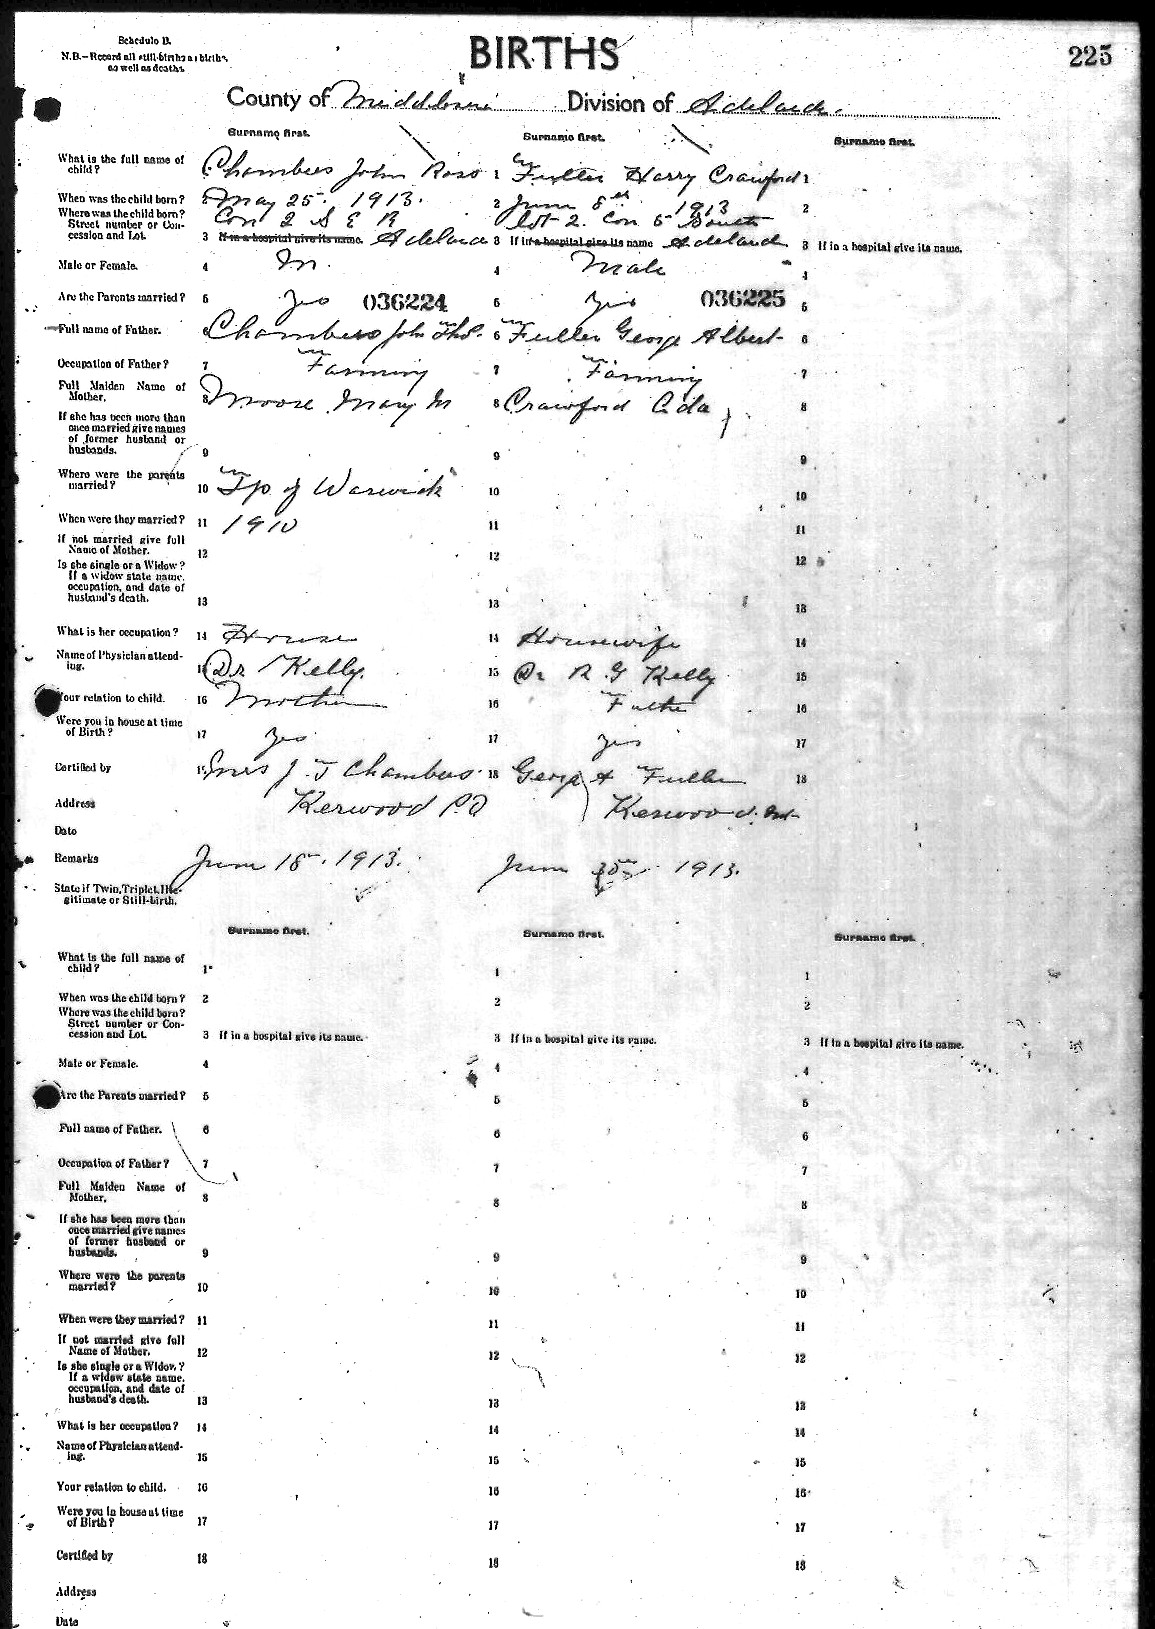 Schedule B.
N.B.—Record all still-births as births,
as well as deaths.
BIRTHS
225
County of Middlesex Division of Adelaide.
Surname first. Surname first. Surname first.
What is the full name of child? 1 Chambers John Ross 1 Fuller Harry Crawford 1
When was the child born? 2 May 25. 1913. 2 June 8th 1913 2
Where was the child born? Street number or Concession and Lot. 3 Con 2 S E R If in a hospital give its name. Adelaide 3 lot 2. Con 5 South If in a hospital give its name Adelaide 3 If in a hospital give its name.
Male or Female. 4 M. 4 Male 4
Are the Parents married? 5 Yes 036224 5 Yes 036225 5
Full name of Father. 6 Chambers John Thos. 6 Fuller George Albert 6
Occupation of Father? 7 Farming 7 Farming 7
Full Maiden Name of Mother. 8 Moose Mary M 8 Crawford Ada 8
If she has been more than once married give names of former husband or husbands. 9 9 9
Where were the parents married? 10 Tp of Warwick 10 10
When were they married? 11 1910 11 11
If not married give full Name of Mother. 12 12 12
Is she single or a Widow? If a widow state name, occupation, and date of husband's death. 13 13 13
What is her occupation? 14 House 14 Housewife 14
Name of Physician attending. 15 Dr Kelly. 15 Dr R G Kelly 15
Your relation to child. 16 Mother 16 Father 16
Were you in house at time of Birth? 17 Yes 17 Yes 17
Certified by 18 Mrs J T Chambers 18 George A Fuller 18
Address Kerwood P.O Kerwood. Ont
Date
Remarks June 18. 1913. June 1913.
State if Twin, Triplet, Illegitimate or Still-birth.
Surname first. Surname first. Surname first.
What is the full name of child? 1 1 1
When was the child born? 2 2 2
Where was the child born? Street number or Concession and Lot. 3 If in a hospital give its name. 3 If in a hospital give its name. 3 If in a hospital give its name.
Male or Female. 4 4 4
Are the Parents married? 5 5 5
Full name of Father. 6 6 6
Occupation of Father? 7 7 7
Full Maiden Name of Mother. 8 8 8
If she has been more than once married give names of former husband or husbands. 9 9 9
Where were the parents married? 10 10 10
When were they married? 11 11 11
If not married give full Name of Mother. 12 12 12
Is she single or a Widow? If a widow state name, occupation, and date of husband's death. 13 13 13
What is her occupation? 14 14 14
Name of Physician attending. 15 15 15
Your relation to child. 16 16 16
Were you in house at time of Birth? 17 17 17
Certified by 18 18 18
Address
Date